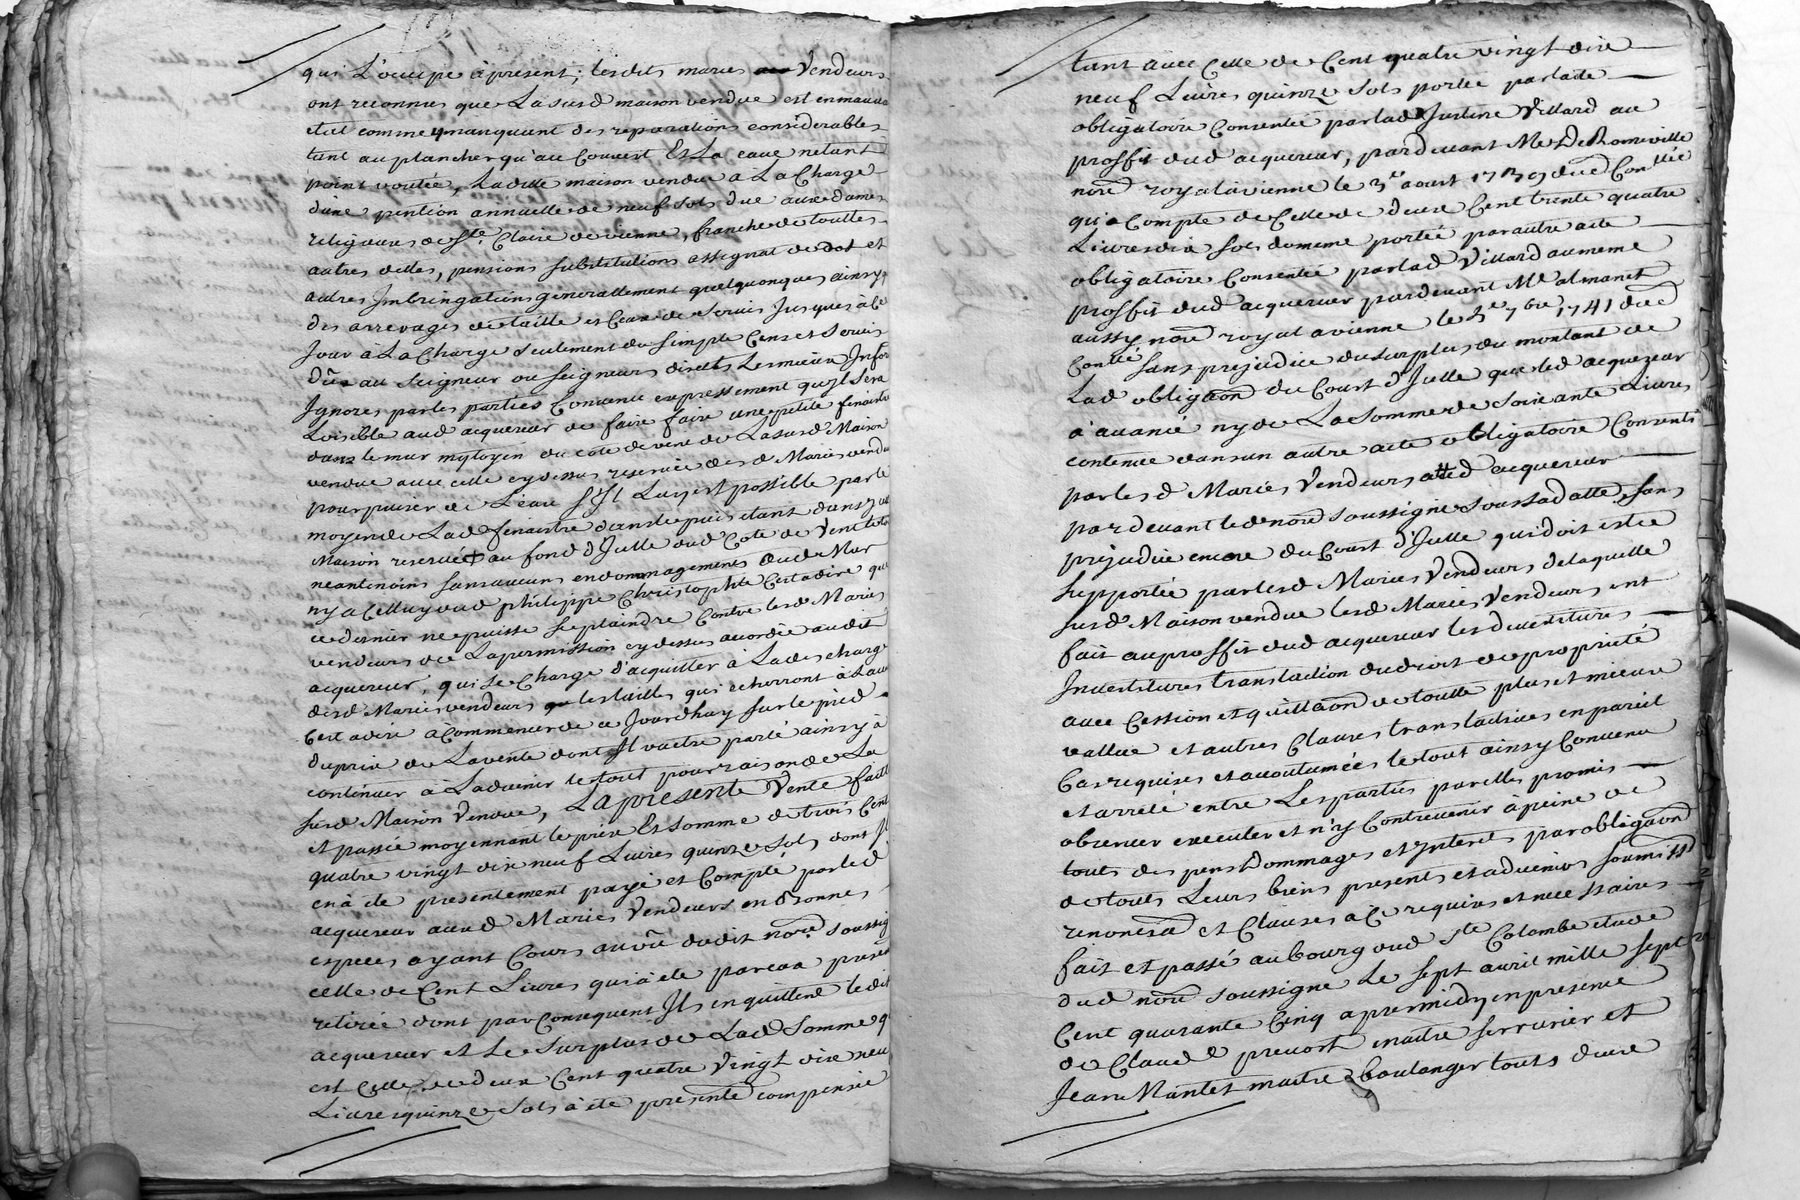 qui L'occupe àpresent; lesdits mariés Vendeurs
ont reconnus que La susd maison vendue est en mauvai
etat comme ymanquant des reparations considerables
tant au plancher qu'au Couvert Et La cave netant
point voutée, Laditte maison vendue à La Charge
dune pention annuelle de neuf sols due aux dames
religieuses de Ste Claire de vienne, franche de touttes
autres dettes, pensions substitutions assignat de dot et
autres Imbringations generallement quelquonques ainsy q
des arrerages de taille et Ceux de servis Jusques à Ce
Jour à La Charge seulement du simple Cens et servis
Dûs au seigneur ou seigneurs directs Les mieux Infor
Ignorés par les parties Convenu expressement quyl sera
Loisible aud acquereur de faire faire une petite fenaistre
dans le mur mytoyen du côté de vent de La susd Maison
vendue avec celle cydessus reservée desd Mariés vendeu
pour puiser de L'eau s'Il Luy est possible par le
moyen de Lad fenaistre dans le puis etant dans
Maison reservée au fond d'Icelle dud Coté de Vent
neantmoins sans aucuns endommagements dud Mur
ny a Celluy dud philippe Christophle Cest adire que
ce dernier ne puisse se plaindre Contre lesd Mariés
vendeurs de La permission cy dessus acordée audit
acquereur, qui se Charge d'acquitter à La descharge
desd Mariés vendeurs les tailles qui echerront à Lave
Cest adire à Commencer de ce Jourdhuy sur le pied
du prix de La vente dont Il va etre parlé ainsy à
continuer à L'advenir le tout pour raison de La
susd Maison Vendue, La presente Vente faitte
et passée moyennant le prix Et somme de trois Cent
quatre vingt dix neuf Livres quinze sols dont Il
en à eté presentement payé et Compté par led
acquereur auxd Mariés Vendeurs en Bonnes
especes ayant Cours au vû dudit nore soussig
celle de Cent Livres qui à eté par eux presen
retirée dont par Consequent Ils en quittent ledit
acquereur et Le surplus de Lad somme q
est Celle de deux Cent quatre Vingt dix neu
Livres quinze sols à eté presente compensée
tant avec Celle de Cent quatre vingt dix
neuf Livres quinze sols portée par acte
obligatoire Consentie par lad Justine Villard au
proffit dud acquereur, pardevant Me De Romeville
nore royal àvienne le 3e aoust 1739 dued Conllée
qu'a Compte de Celle de deux Cent trente quatre
Livres dix sols de meme portée par autre acte
obligatoire Consentie par lad Villard au meme
proffit dud acquereur pardevant Me almanet
aussy nore royal avienne le 7bre 1741 dued
Conllée sans prejudice du surplus du montant de
Lad obligaon du Court d'Icelle que led acquereur
à avancé ny de La somme de soixante Livres
contenue dans un autre acte obligatoire Consenti
par lesd Mariés Vendeurs aud acquereur
pardevant led nore soussigné sous sa datte, sans
prejudice encore du Court d'Icelle qui doit estre
supportée par lesd Mariés Vendeurs de laquelle
susd Maison vendue lesd Mariés Vendeurs ont
fait au proffit dud acquereur les devestitures
Investitures translaction du droit de propriété
avec Cession et quittaon de toutte plus et mieux
vallue et autres Clauses translatives en pareil
Cas requises et accoutumées le tout ainsy Convenu
et arreté entre Les parties par elles promis
observer executer et n'y Contrevenir à peine de
touts despens Dommages et Interets par obligaon
de touts Leurs biens presents et advenirs soumissn
renoncaon et Clauses à Ce requises et necessaires
fait et passé au bourg dud Ste Colombe etude
dud nore soussigné Le sept avril mille sept
Cent quarante Cinq apresmidy en presence
de Claude prevost maitre serrurier et
Jean Mantet maitre boulanger touts deux